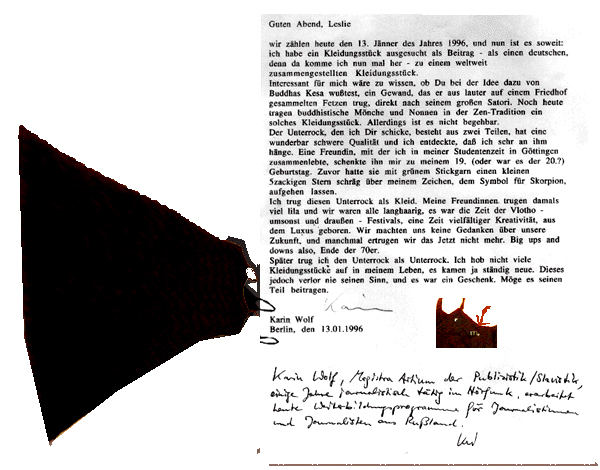 Guten Abend, Leslie
wir zählen heute den 13. Jänner des Jahres 1996, und nun ist es soweit:
ich habe ein Kleidungsstück ausgesucht als Beitrag - als einen deutschen,
denn da komme ich nun mal her - zu einem weltweit
zusammengestellten Kleidungsstück.
Interessant für mich wäre zu wissen, ob Du bei der Idee dazu von
Buddhas Kesa wußtest, ein Gewand, das er aus lauter auf einem Friedhof
gesammelten Fetzen trug, direkt nach seinem großen Satori. Noch heute
tragen buddhistische Mönche und Nonnen in der Zen-Tradition ein
solches Kleidungsstück. Allerdings ist es nicht begehbar.
Der Unterrock, den ich Dir schicke, besteht aus zwei Teilen, hat eine
wunderbar schwere Qualität und ich entdeckte, daß ich sehr an ihm
hänge. Eine Freundin, mit der ich in meiner Studentenzeit in Göttingen
zusammenlebte, schenkte ihn mir zu meinem 19. (oder war es der 20.?)
Geburtstag. Zuvor hatte sie mit grünem Stickgarn einen kleinen
5zackigen Stern schräg über meinem Zeichen, dem Symbol für Skorpion,
aufgehen lassen.
Ich trug diesen Unterrock als Kleid. Meine Freundinnen trugen damals
viel lila und wir waren alle langhaarig, es war die Zeit der Vlotho -
umsonst und draußen - Festivals, eine Zeit vielfältiger Kreativität, aus
dem Luxus geboren. Wir machten uns keine Gedanken über unsere
Zukunft, und manchmal ertrugen wir das Jetzt nicht mehr. Big ups and
downs also, Ende der 70er.
Später trug ich den Unterrock als Unterrock. Ich hob nicht viele
Kleidungsstücke auf in meinem Leben, es kamen ja ständig neue. Dieses
jedoch verlor nie seinen Sinn, und es war ein Geschenk. Möge es seinen
Teil beitragen.
Karin
Karin Wolf
Berlin, den 13.01.1996
Karin Wolf, Magistra Artium der Publizistik/Slavistik,
einige Jahre journalistisch tätig im Hörfunk, erarbeitet
heute Weiterbildungsprogramme für Journalistinnen
und Journalisten aus Rußland.